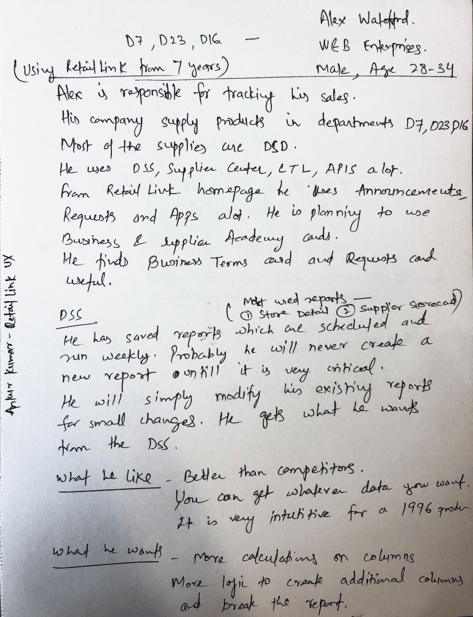 Alex Watford.
D7, D23, D16 —
W&B Enterprises.
(Using Retail Link from 7 years)
Male, Age 28-34
Alex is responsible for tracking his sales.
His company supply products in departments D7, D23, D16
Most of the supplies are DSD.
He uses DSS, Supplier Center, LTL, APIS alot.
From Retail Link homepage he uses Announcements,
Requests and Apps alot. He is planning to use
Business & Supplier Academy cards.
He finds Business Terms card and Requests card
useful.
Most used reports —
DSS
(① Store Detail ② Supplier Scorecard)
He has saved reports which are scheduled and
run weekly. Probably he will never create a
new report untill it is very critical.
He will simply modify his existing reports
for small changes. He gets what he wants
from the DSS.
What he like - Better than competitors.
You can get whatever data you want.
It is very intuitive for a 1996
What he wants - More calculations on columns
More logic to create additional columns
and break the report.
Ankur Kumar - Retail Link UX